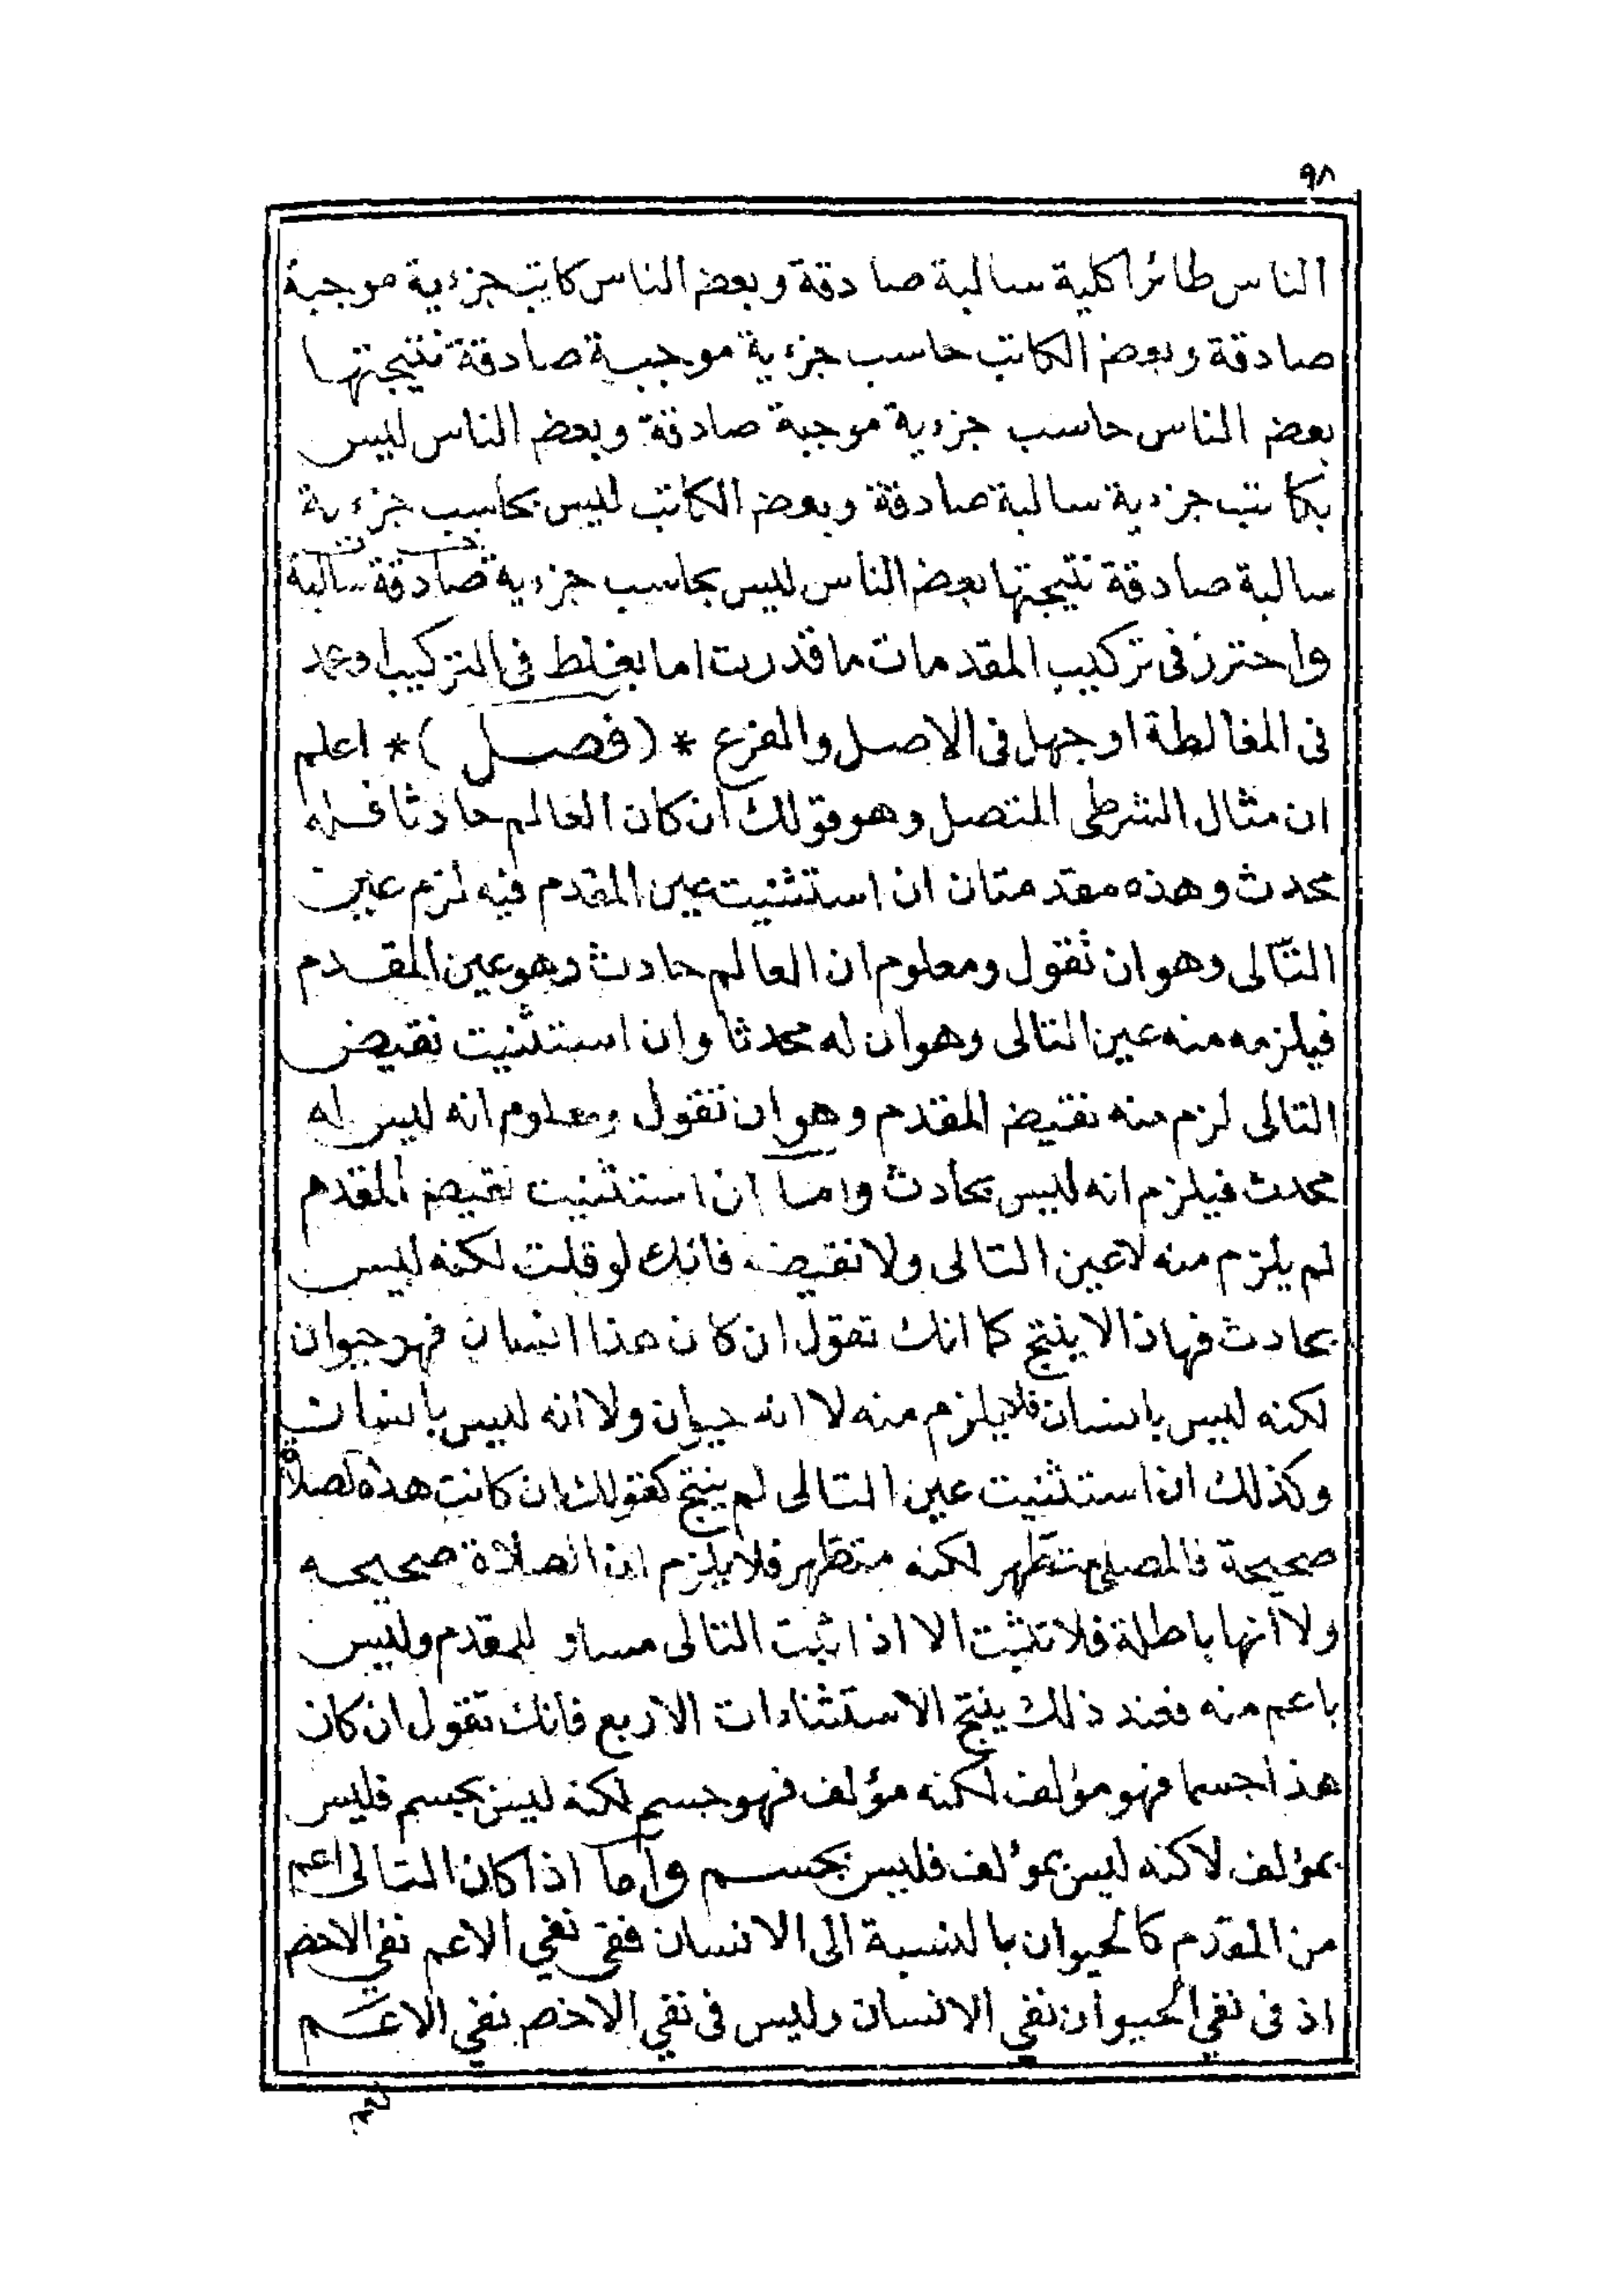 ٩٨
الناس طائرا كلية سالبة صادقة وبعض الناس كاتب جزءية موجبة
صادقة وبعض الكاتب حاسب جزءية موجبة صادقة نتيجتها
بعض الناس حاسب جزءية موجبة صادقة وبعض الناس ليس
بكاتب جزءية سالبة صادقة وبعض الكاتب ليس بحاسب جزءية
سالبة صادقة نتيجتها بعض الناس ليس بحاسب جزءية صادقة سالبة
واحترز فى تركيب المقدمات ما قدرت اما بغلط فى التركيب او عمد
فى المغالطة او جهل فى الاصل والفرع * (فصل) * اعلم
ان مثال الشرطى المتصل وهو قولك ان كان العالم حادثا فله
محدث وهذه مقدمتان ان استثنيت عين المقدم فيه لزم عين
التّالى وهو ان تقول ومعلوم ان العالم حادث وهو عين المقدم
فيلزمه منه عين التالى وهو ان له محدثا وان استثنيت نقيض
التالى لزم منه نقيض المقدم وهو ان تقول ومعلوم انه ليس له
محدث فيلزم انه ليس بحادث واما ان استثنيت نقيض المقدم
لم يلزم منه لا عين التالى ولا نقيضه فانك لو قلت لكنه ليس
بحادث فهاذا لا ينتج كما انك تقول ان كان هذا انسان فهو حيوان
لكنه ليس بانسان فلا يلزم منه لا انه حيوان ولا انه ليس بانسان
وكذلك ان استثنيت عين التالى لم ينتج كقولك ان كانت هذه لصلاة
صحيحة فالمصلى متطهر لكنه متطهر فلا يلزم ان الصلاة صحيحه
ولا انها باطلة فلا تثبت الا اذا ثبت التالى مساو للمقدم وليس
باعم منه فعند ذلك ينتج الاستثناءات الاربع فانك تقول ان كان
هذا جسما فهو مؤلف لكنه مؤلف فهو جسم لكنه ليس بجسم فليس
بمؤلف لاكنه ليس بمؤلف فليس بجسم واما اذا كان التالى اعم
من المقدم كالحيوان بالنسبة الى الانسان ففى نفي الاعم نفي الاخص
اذ فى نفي الحيوان نفي الانسان وليس فى نفي الاخص نفي الاعم
نعم